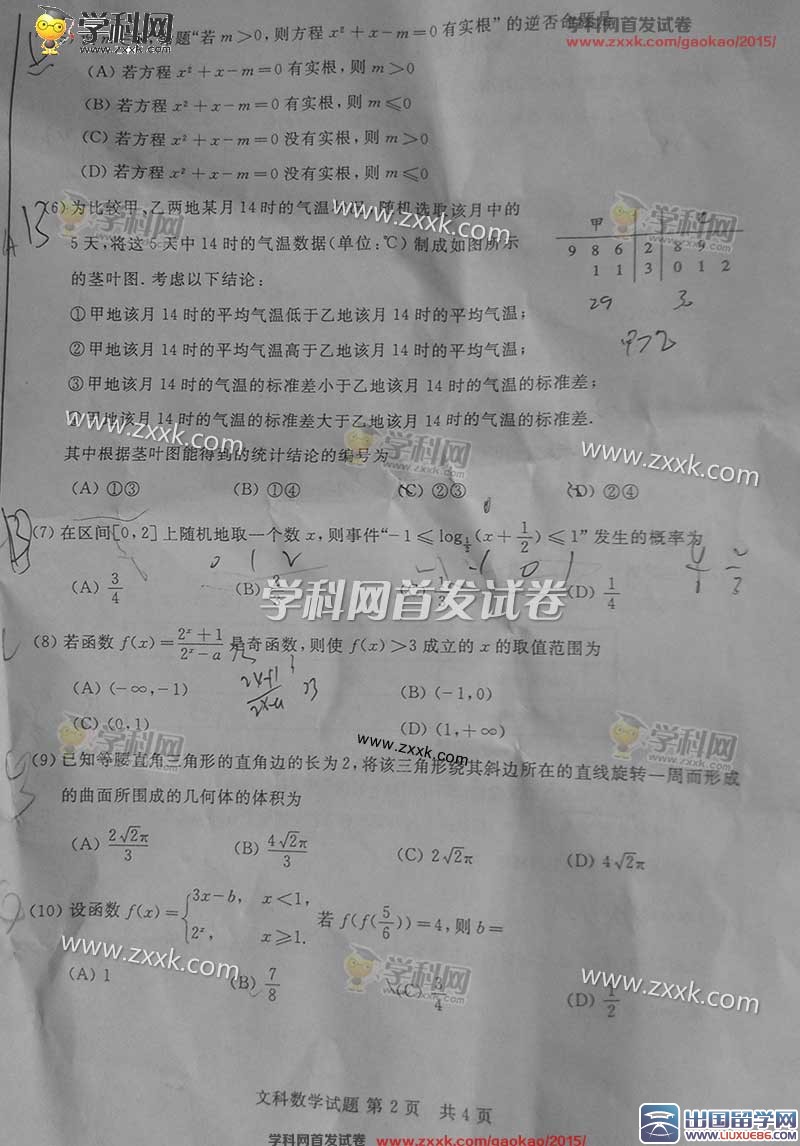 学科网
www.zxxk.com
学科网首发试卷
www.zxxk.com/gaokao/2015/
题“若 m>0,则方程 x²+x-m=0 有实根”的逆否命题是
(A) 若方程 x²+x-m=0 有实根,则 m>0
(B) 若方程 x²+x-m=0 有实根,则 m⩽0
(C) 若方程 x²+x-m=0 没有实根,则 m>0
(D) 若方程 x²+x-m=0 没有实根,则 m⩽0
(6) 为比较甲、乙两地某月 14 时的气温 随机选取该月中的
5 天,将这 5 天中 14 时的气温数据(单位:℃)制成如图所示
的茎叶图. 考虑以下结论:
甲
9 8 6 2 8 9
1 1 3 0 1 2
29
甲>乙
①甲地该月 14 时的平均气温低于乙地该月 14 时的平均气温;
②甲地该月 14 时的平均气温高于乙地该月 14 时的平均气温;
③甲地该月 14 时的气温的标准差小于乙地该月 14 时的气温的标准差;
甲地该月 14 时的气温的标准差大于乙地该月 14 时的气温的标准差.
www.zxxk.com
学科网
www.zxxk.com
其中根据茎叶图能得到的统计结论的编号为
(A) ①③ (B) ①④ (C) ②③ (D) ②④
B (7) 在区间[0,2]上随机地取一个数 x,则事件“-1⩽log_{1/2}(x+1/2)⩽1”发生的概率为
0 1 2 -1 -1 0 1
(A) 3/4 (B) (C) 1/3 (D) 1/4
学科网首发试卷
(8) 若函数 f(x)=(2ˣ+1)/(2ˣ-a) 是奇函数,则使 f(x)>3 成立的 x 的取值范围为
(A) (-∞,-1) (B) (-1,0)
(C) (0,1) (D) (1,+∞)
www.zxxk.com
(9) 已知等腰直角三角形的直角边的长为 2,将该三角形绕其斜边所在的直线旋转一周而形成
的曲面所围成的几何体的体积为
(A) 2√2π/3 (B) 4√2π/3 (C) 2√2π (D) 4√2π
(10) 设函数 f(x)={3x-b, x<1,
2ˣ, x⩾1.
若 f(f(5/6))=4,则 b=
www.zxxk.com
学科网
www.zxxk.com
(A) 1 (B) 7/8 (C) 3/4 (D) 1/2
文科数学试题 第 2 页 共 4 页
学科网首发试卷 www.zxxk.com/gaokao/2015/
出国留学网
WWW.LIUXUE86.COM